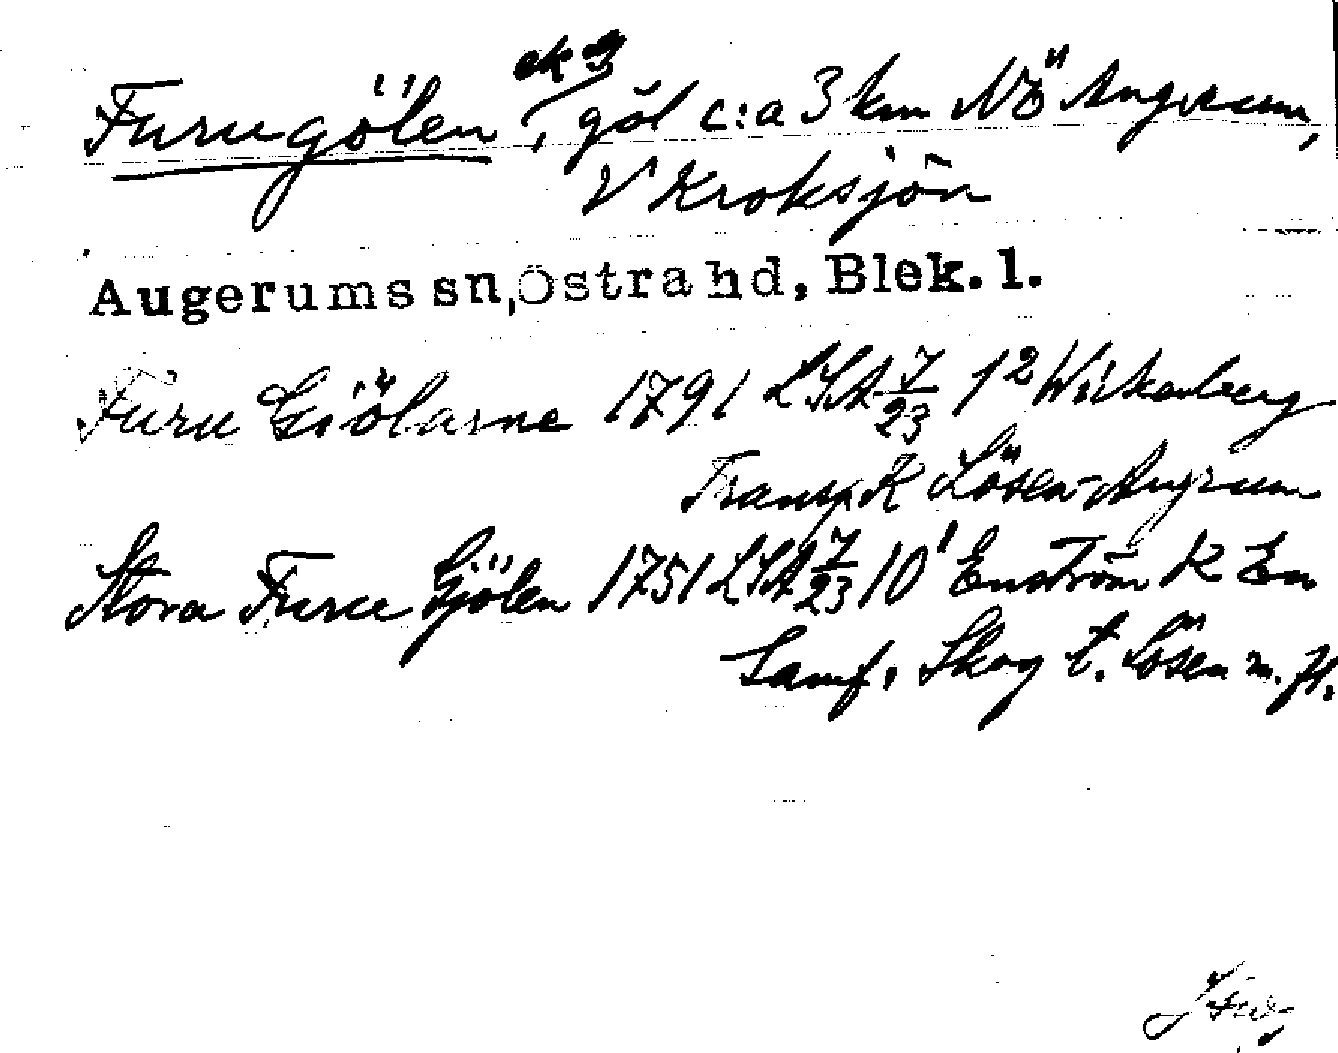 ek 9
Furugölen, göl c:a 3 km NÖ Augerum,
V Kroksjön
Augerums sn, Östra hd, Blek. l.
Furu Giölarne 1791 LSA 7/23 1² Wirkenberg
Transp. K Lösen-Augrum
Stora Furu Gjölen 1751 LSA 7/23 10¹ Enström K En
Samf. Skog t. Lösen m. fl.